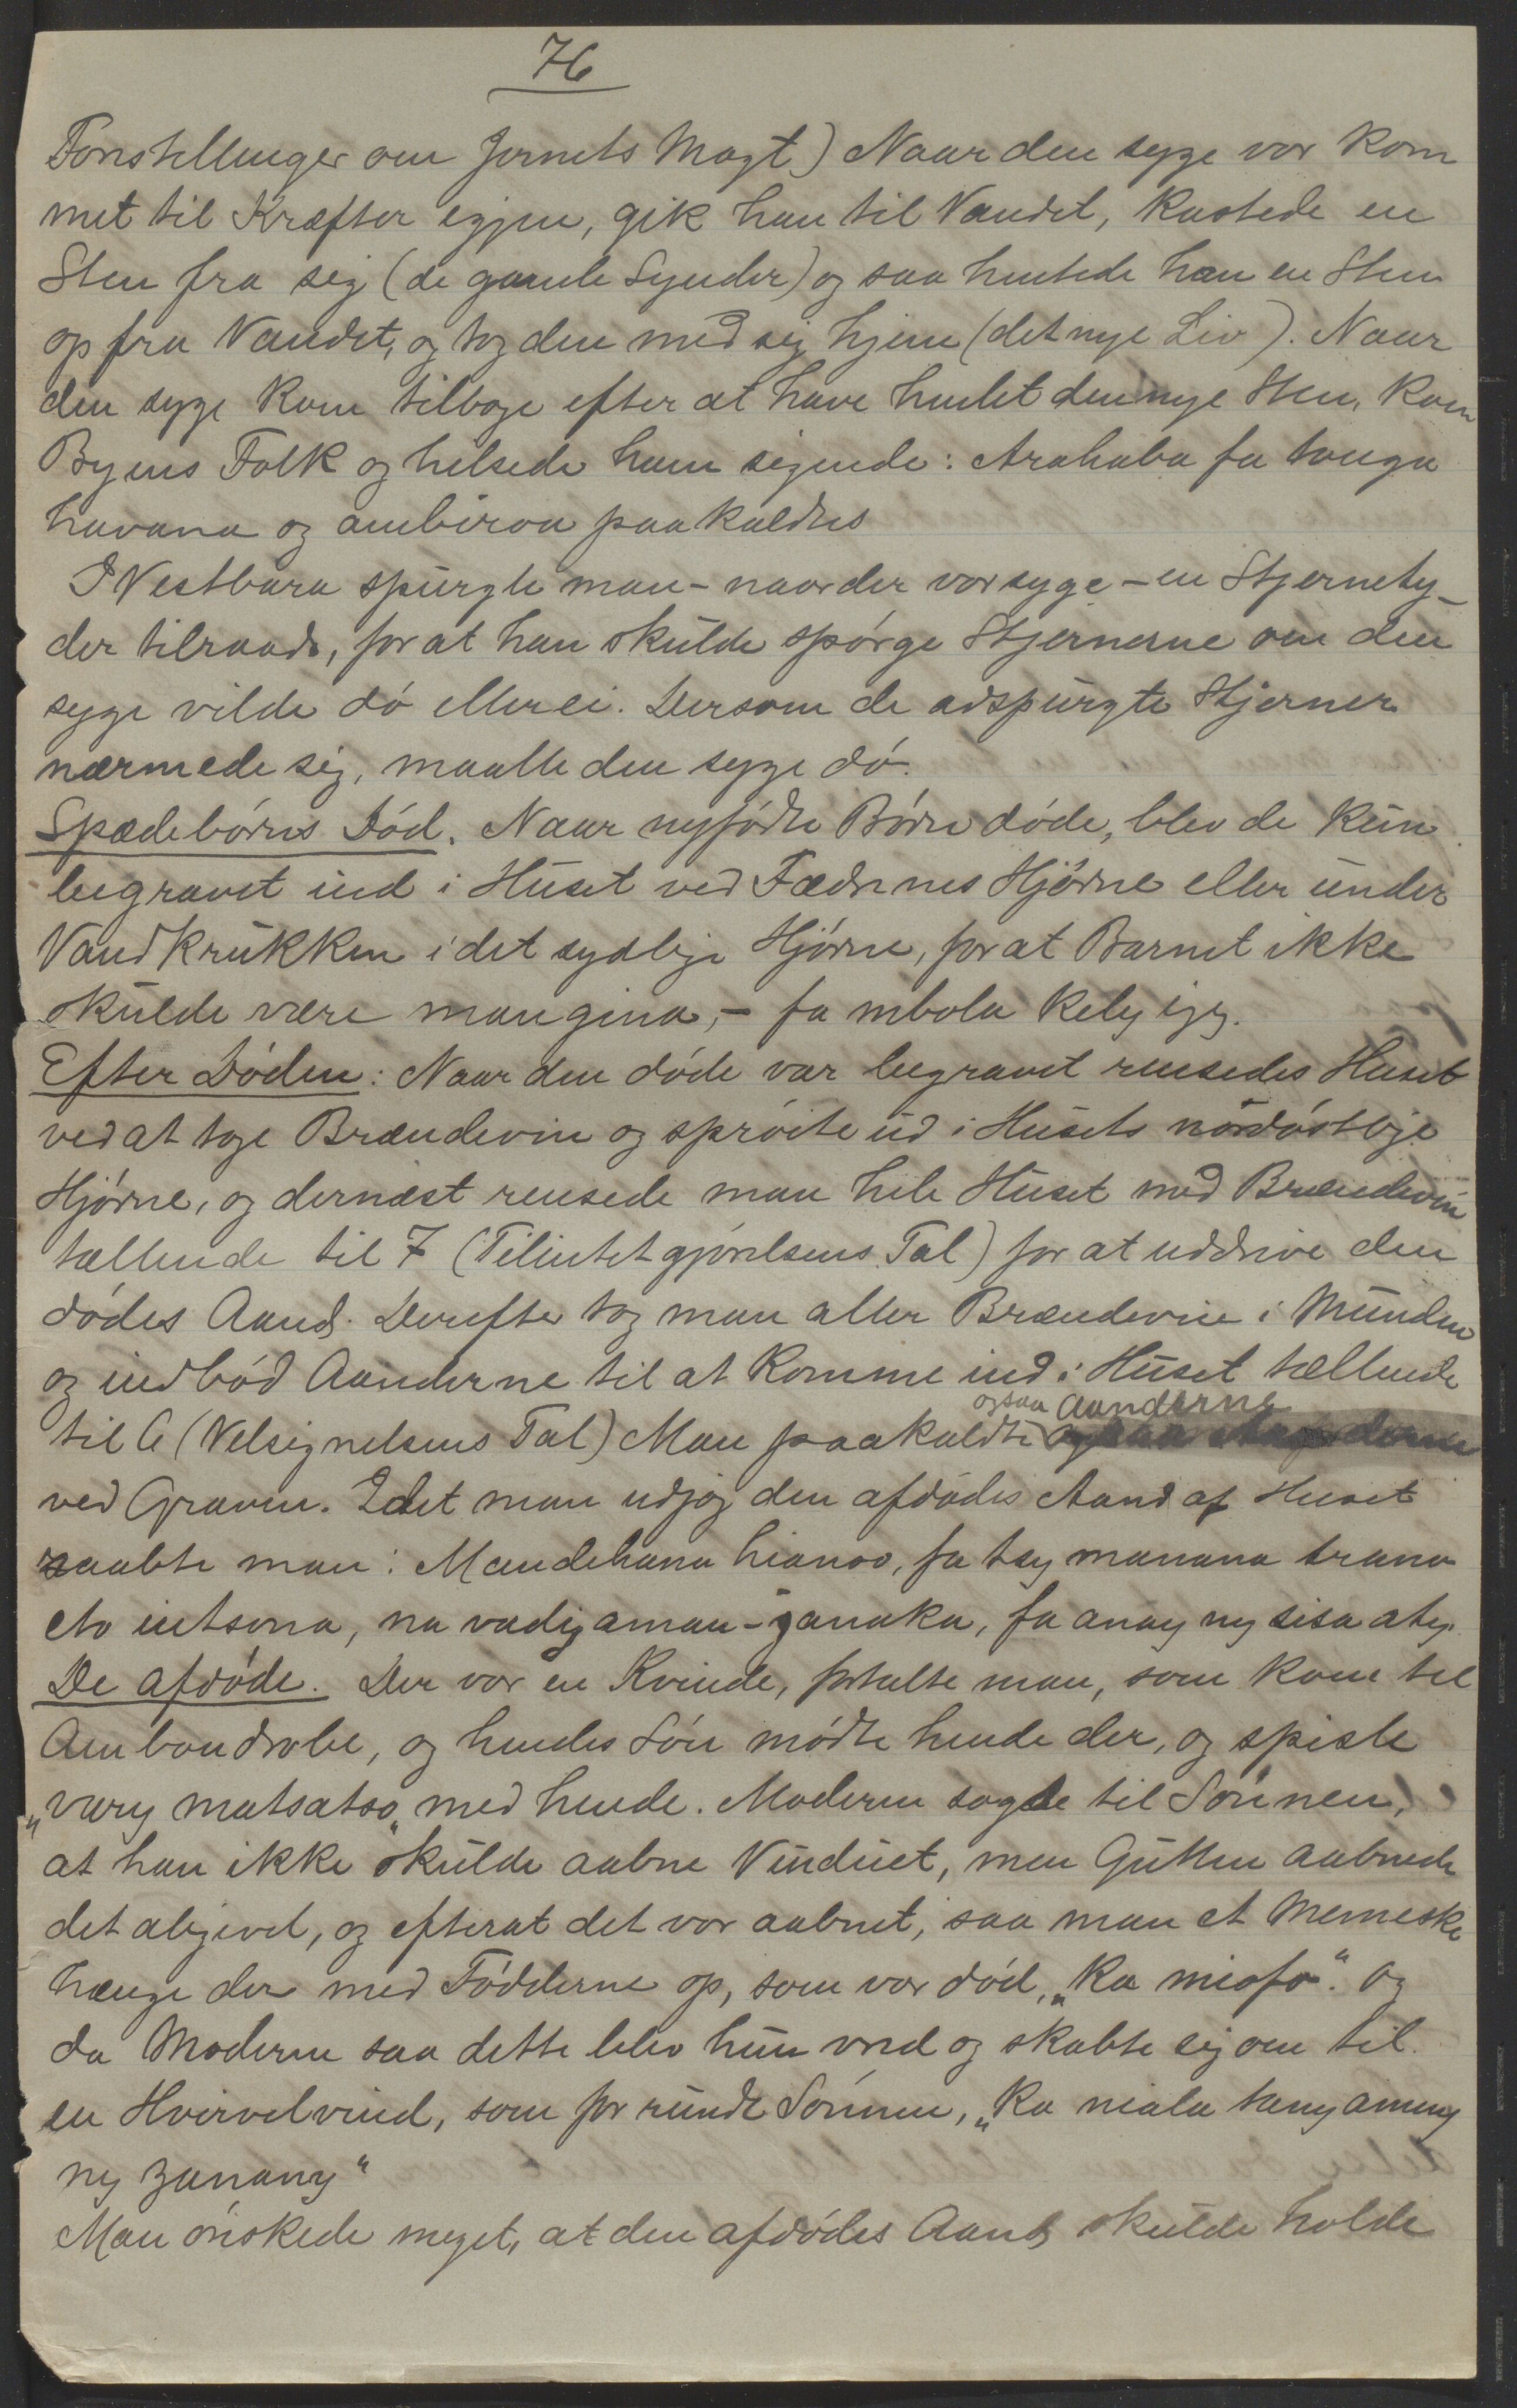 76
Forestillinger om Jernets Magt) Naar den syge var kom
met til Kræfter igjen, gik han til Vandet, kastede en
Sten fra sig (de gamle Synder) og saa hentede han en Sten
op fra Vandet, og tog den med sig hjem (det nye Liv). Naar
den syge kom tilbage efter at have hentet den nye Sten, kom
Byens Folk og hilsede ham sigende: Arahaba fa tonga
havana og ambiroa paakaldtes
I Vestbara spurgte man - naar der var syge - en Stjernety-
der tilraads, for at han skulde spørge Stjernerne om den
syge vilde dø eller ei. Dersom de adspurgte Stjerner
nærmede sig, maatte den syge dø.
Spædebørns Død. Naar nyfødte Børn døde, blev de kun
begravet ind i Huset ved Fædrenes Hjørne eller under
Vandkrukken i det sydlige Hjørne, for at Barnet ikke
skulde være mangina, - fa mbola kely izy.
Efter Døden: Naar den døde var begravet rensedes Huset
ved at tage Brændevin og sprøite ud i Husets nordøstlige
Hjørne, og dernæst rensede man hele Huset med Brændevin
tællende til 7 (Tilintetgjørelsens Tal) for at uddrive den
dødes Aand. Derefter tog man atter Brændevin i Munden
og indbød Aanderne til at komme ind i Huset tællende
til 6 (Velsignelsens Tal) Man paakaldte ogsaa Aanderne
ved Graven. Idet man udjog den afdødes Aand af Huset
raabte man: Mandehana hianao, fa tsy manana trano
eto intsona, na vady aman-janaka, fa anay ny sisa aty.
De afdøde. Der var en Kvinde, fortalte man, som kom til
Ambondrobe, og hendes Søn mødte hende der, og spiste
"vary matsatso" med hende. Moderen sagde til Sønnen,
at han ikke skulde aabne Vinduet, men Gutten aabnede
det aligevel, og efterat det var aabnet, saa man et Menneske
hænge der med Fødderne op, som var død, "ka miofo". Og
da Moderen saa dette blev hun vred og skabte sig om til
en Hvirvelvind, som for rundt Sønnen, "ka niala tany aminy
ny zanany"
Man ønskede meget, at den afdødes Aand skulde holde